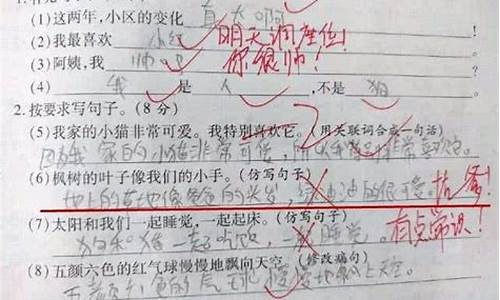 (1)这两年,小区的变化真大啊
(2)我最喜欢 小红 明天调座位!
(3)阿姨,我 帅吧 你很帅!
(4) 我 是 人 ,不是 狗
2.按要求写句子。(8 分)
(5)我家的小猫非常可爱。我特别喜欢它。(用关联词合成一句话)
因为我家的小猫非常可爱,所以我特别非常喜欢它。
(6)枫树的叶子像我们的小手。(仿写句子)
地上的草地像爸爸的头发,绿油油的很可爱。
(7)太阳和我们一起睡觉,一起起床。(仿写句子)
狗和猪一起吃饭,一起睡觉。 有点常识!
(8)五颜六色的红气球慢慢地飘向天空。(修改病句)
五颜六色的气球慢慢地飘上天空。